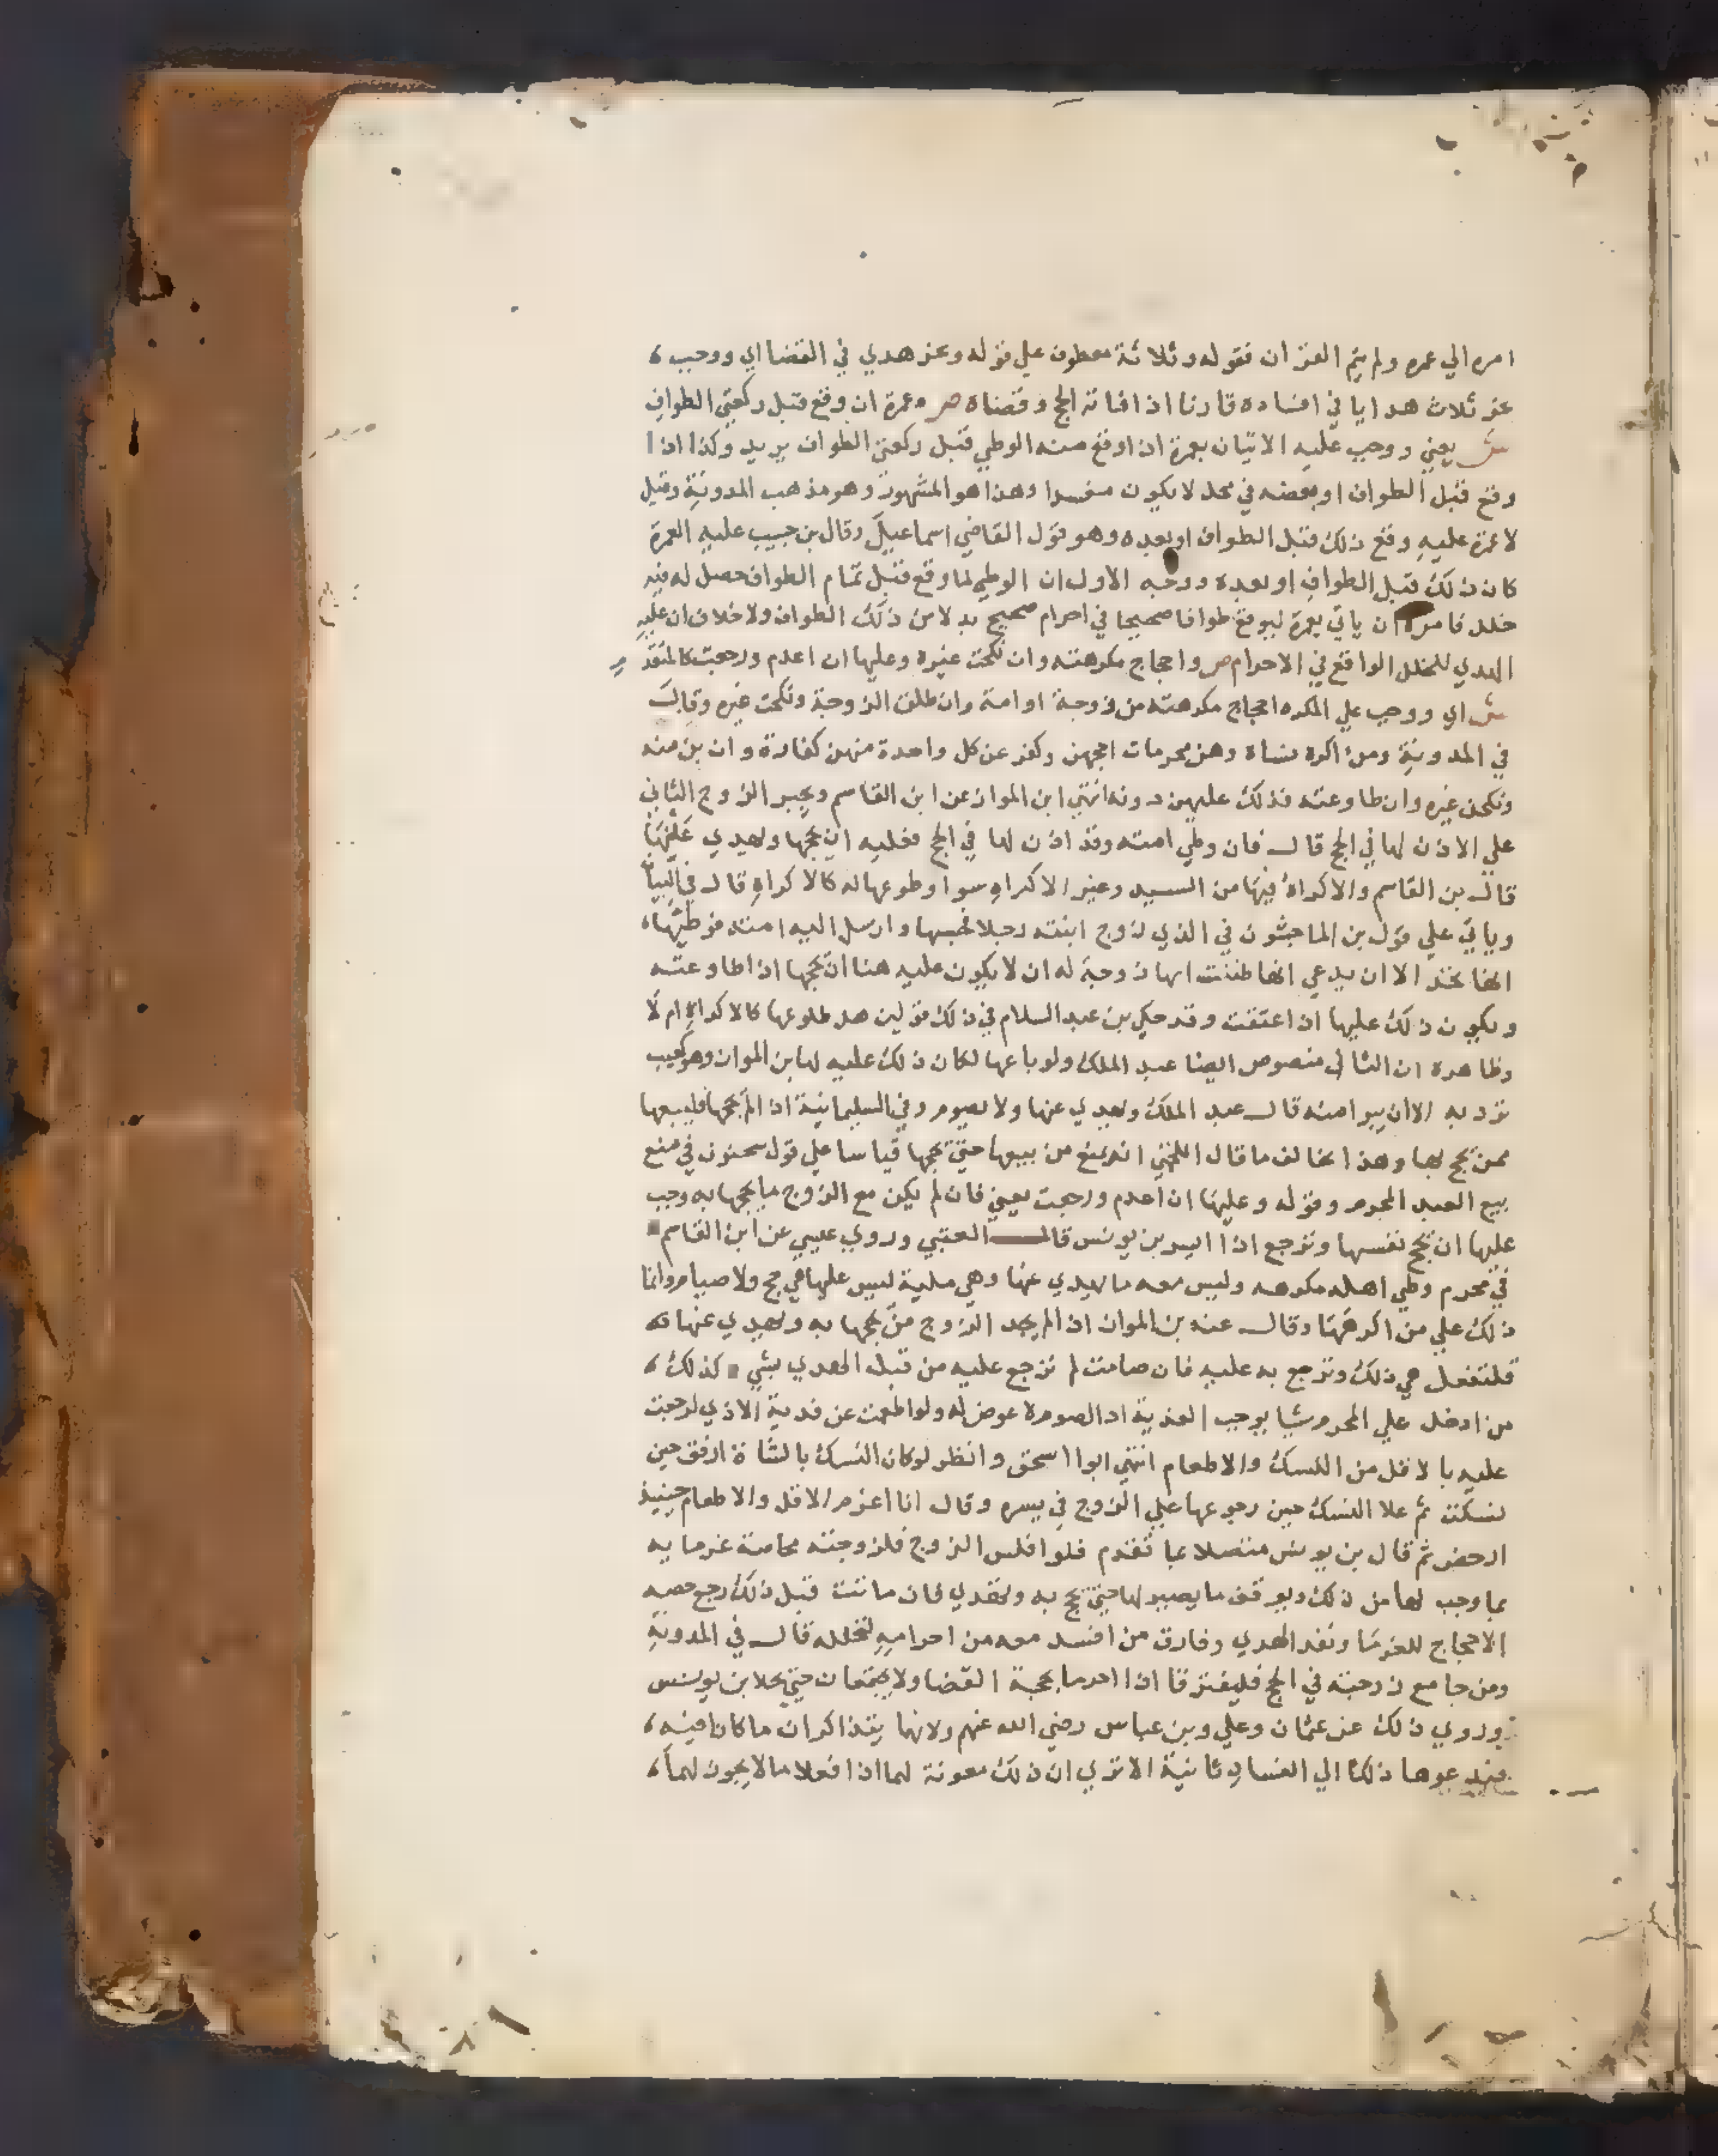 امره الي عمره ولم يتم القران فقوله وثلاثة معطوف علي قوله وعن هدي في القضا اي ووجب
عن ثلاث هدايا في افساده قارنا اذا فاته الحج وقضاه ص وعمرة ان وقع قبل ركعتي الطواف
ش يعني ووجب عليه الاتيان بعمرة ان اوقع منه الوطي قبل ركعتي الطواف يريد وكذا اذا
وقع قبل الطواف او بعضه في محل لا يكون مفسدا وهذا هو المشهور وهو مذهب المدونة وقيل
لا عمرة عليه وقع ذلك قبل الطواف او بعده وهو قول القاضي اسماعيل وقال بن حبيب عليه العمرة
كان ذلك قبل الطواف او بعده ووجه الاول ان الوطي لما وقع قبل تمام الطواف حصل له فيه
خلل فامره ان ياتي بعمرة ليوقع طوافا صحيحا في احرام صحيح بدلا من ذلك الطواف ولا خلاف ان عليه
الهدي للخلل الواقع في الاحرام ص واحجاج مكرهته وان نكحت غيره وعليها ان اعدم ورجعت كالمتقدم
ش اي ووجب علي المكره احجاج مكرهته من زوجة او امة وان طلق الزوجة ونكحت غيره وقال
في المدونة ومن اكره نساه وهن محرمات احجهن وكفر عن كل واحدة منهن كفارة وان بن منه
ونكحن غيره وان طاوعنه فذلك عليهن دونه انتهي ابن المواز عن ابن القاسم ويجبر الزوج الثاني
علي الاذن لها في الحج قال فان وطي امته وقد اذن لها في الحج فعليه ان يحجها ويهدي عنها
قال بن القاسم والاكراه فيها من السيد وغير الاكراه سوا وطوعها له كالاكراه قال في البيان
وياتي علي قول بن الماجشون في الذي زوج ابنته رجلا فحبسها وارسل اليه امته فوطيها
انها تحد الا ان يدعي انها ظننت انها زوجة له ان لا يكون عليه هنا ان يحجها اذا طاوعته
ويكون ذلك عليها اذا عتقت وقد حكي بن عبد السلام في ذلك قولين هل طوعها كالاكراه ام لا
وظاهره ان الثاني منصوص ايضا عبد الملك ولو باعها لكان ذلك عليه لها بن المواز وهو كعيب
ترد به الا ان يبرا منه قال عبد الملك ويهدي عنها ولا يصوم وفي السليمانية اذا لم يحجها فليبعها
ممن يحج بها وهذا يخالف ما قال اللخمي انه يمنع من بيعها حتي يحجها قياسا علي قول سحنون في منع
بيع العبد المحرم وقوله وعليها ان اعدم ورجعت يعني فان لم يكن مع الزوج ما يحجها به وجب
عليها ان تحج نفسها وترجع اذا ايسر بن يونس قال العتبي وروي عيسي عن ابن القاسم
في محرم وطي اهله مكرهه وليس معه ما يهدي عنها وهي ملية ليس عليها هي حج ولا صيام وانما
ذلك علي من اكرهها وقال عنه بن المواز اذا لم يجد الزوج من يحجها به ويهدي عنها به
فلتفعل هي ذلك وترجع به عليه فان صامت لم ترجع عليه من قبل الهدي بشي كذلك
من ادخل علي المحرم شيا يوجب الفدية اذ الصوم لا عوض له ولو اطعمت عن فدية الاذي لرجعت
عليه بالاقل من النسك والاطعام انتهي ابو اسحق وانظر لو كان النسك بالشاة ارفق حين
نسكت ثم غلا النسك حين رجوعها علي الزوج في يسره وقال انا اغرم الاقل والاطعام حينيذ
ارخص ثم قال بن يونس متصلا بما تقدم فلو افلس الزوج فلزوجته محاصة غرمايه
بما وجب لها من ذلك ويوقف ما يصير لها حتي تحج به وتهدي فان ماتت قبل ذلك رجع حصة
الاحجاج للغرما ونفذ الهدي وفارق من افسد معه من احرامه لتحلله قال في المدونة
ومن جامع زوجته في الحج فليفترقا اذا احرما بحجة القضا ولا يجتمعان حتي يحلا بن يونس
وروي ذلك عن عثمان وعلي وبن عباس رضي الله عنهم ولانهما يتذاكران ما كانا فيه
فيدعوهما ذلك الي الفساد ثانية الا تري ان ذلك معونة لهما اذا فعلا ما لا يجوز لهما